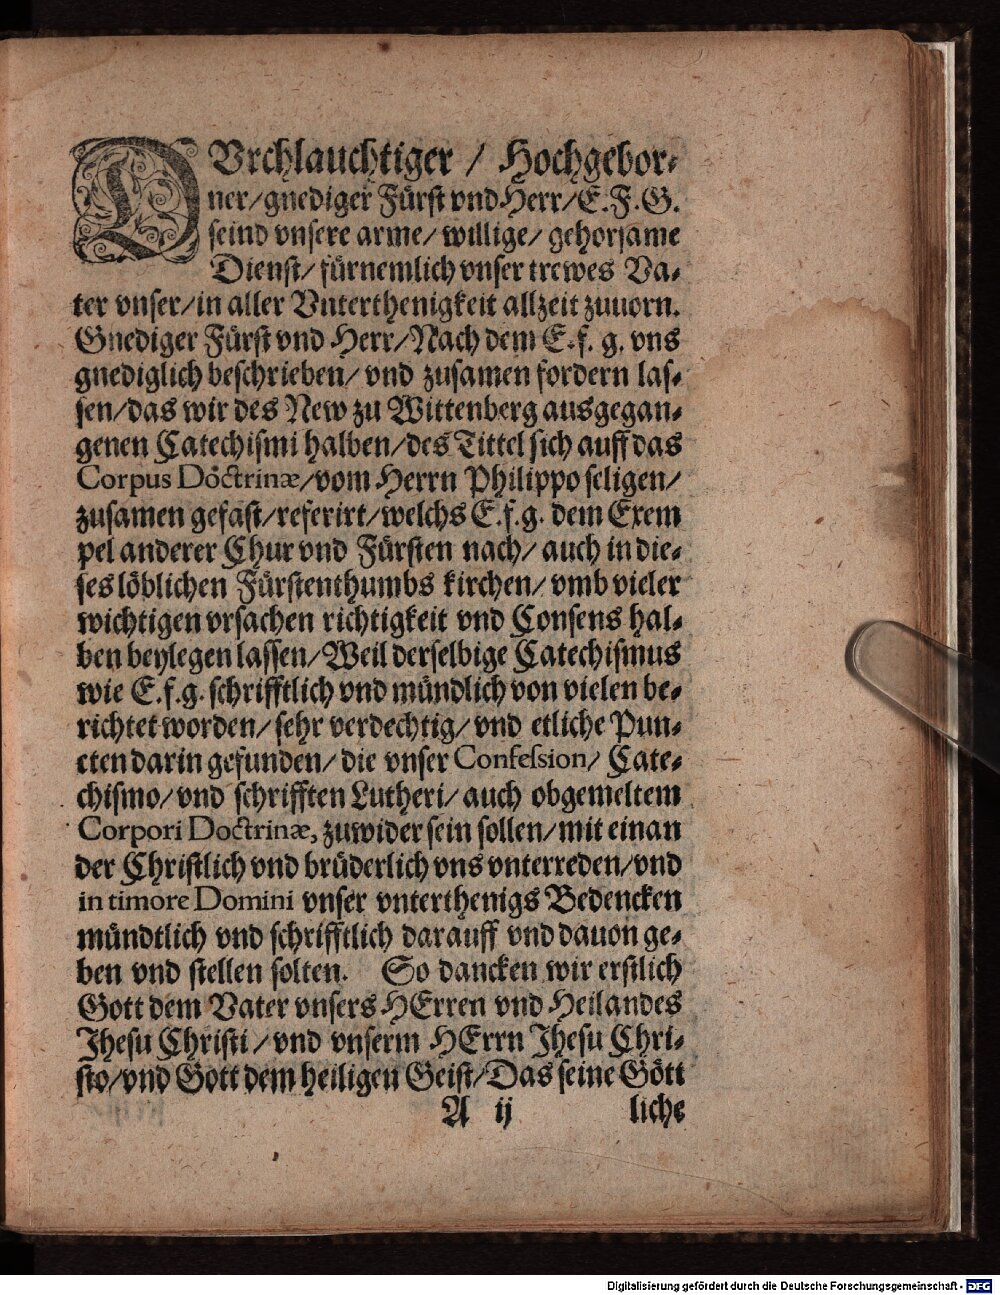 DVrchlauchtiger / Hochgebor⸗
ner/gnediger Fürst vnd Herr/E.F.G.
seind vnsere arme/ willige/ gehorsame
Dienst/ fürnemlich vnser trewes Va⸗
ter vnser/in aller Vnterthenigkeit allzeit zuuorn.
Gnediger Fürst vnd Herr/Nach dem E.f.g. vns
gnediglich beschrieben/ vnd zusamen fordern las⸗
sen/das wir des New zu Wittenberg ausgegan⸗
genen Catechismi halben/des Tittel sich auff das
Corpus Doctrinæ/vom Herrn Philippo seligen/
zusamen gefast/referirt/welchs E.f.g. dem Exem
pel anderer Chur vnd Fürsten nach/ auch in die⸗
ses löblichen Fürstenthumbs kirchen/ vmb vieler
wichtigen vrsachen richtigkeit vnd Consens hal⸗
ben beylegen lassen/Weil derselbige Catechismus
wie E.f.g. schrifftlich vnd mündlich von vielen be⸗
richtet worden/ sehr verdechtig/ vnd etliche Pun⸗
cten darin gefunden/ die vnser Confession/ Cate⸗
chismo/ vnd schrifften Lutheri/ auch obgemeltem
Corpori Doctrinæ, zuwider sein sollen/ mit einan
der Christlich vnd brüderlich vns vnterreden/vnd
in timore Domini vnser vnterthenigs Bedencken
mündtlich vnd schrifftlich darauff vnd dauon ge⸗
ben vnd stellen solten. So dancken wir erstlich
Gott dem Vater vnsers HErren vnd Heilandes
Jhesu Christi / vnd vnserm HErrn Jhesu Chri⸗
sto/vnd Gott dem heiligen Geist/Das seine Gött
A ij liche
Digitalisierung gefördert durch die Deutsche Forschungsgemeinschaft - DFG